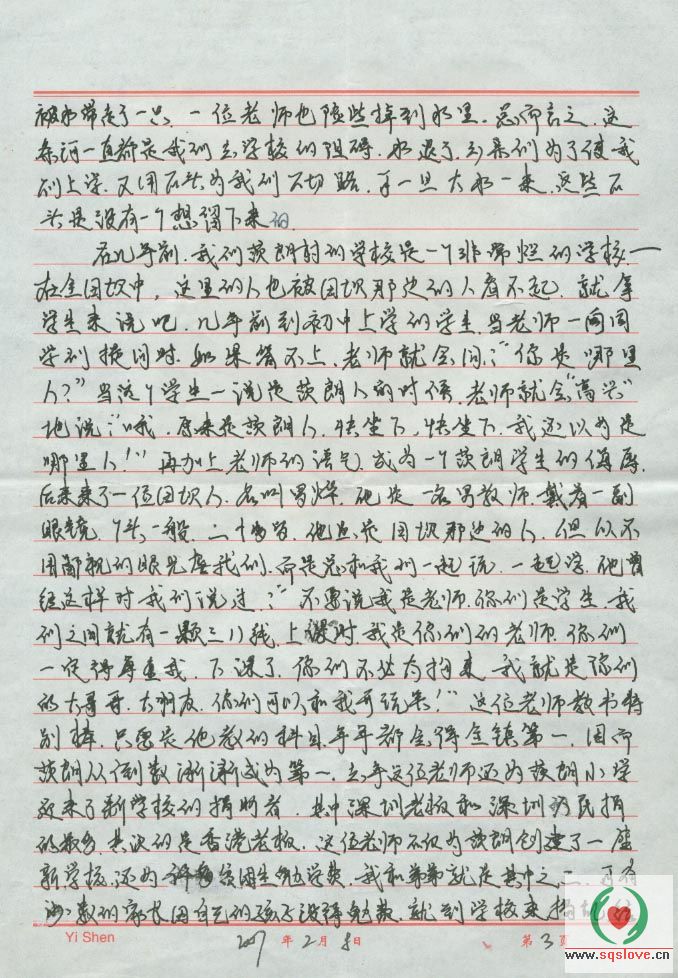 被水带走了一只、一位老师也险些掉到水里。总而言之,这
条河一直都是我们去学校的阻碍。水退了,乡亲们为了使我
们上学,又用石头为我们不切路,可一旦大水一来,这些石
头是没有一个想留下来的。
在几年前,我们茨朗村的学校是一个非常烂的学校、
在全田坝中,这里的人也被田坝那边的人看不起,就拿
学生来说吧,几年前到初中上学的学生,当老师一向同
学们提问时,如果答不上,老师就会问:“你是哪里
人?”当这个学生一说是茨朗人的时候,老师就会“高兴”
地说:“哦,原来是茨朗人,快坐下,快坐下,我还以为是
哪里人!”再加上老师的语气,成为一个茨朗学生的侮辱。
后来来了一位田坝人,名叫 他是一名男教师,戴着一副
眼镜,个头一般,二十 他虽是田坝那边的人,但从不
用鄙视的眼光瞧我们,而是总和我们一起玩,一起学,他曾
经这样对我们说过:“不要说我是老师,你们是学生,我
们之间就有一颗 上课时,我是你们的老师,你们
一定得尊重我,下课了,你们不必太拘束,我就是你们
的大哥哥、大朋友,你们可以和我开玩笑!”这位老师教书特
别棒,只要是他教的科目,年年都会得全镇第一,因而
茨朗从倒数渐渐成为第一,去年这位老师还为茨朗小学
迎来了新学校的捐助者,其中深圳老板和深圳市民捐
的最多,其次的是香港老板,这位老师不仅为茨朗创建了一座
新学校,还为许多贫困生免学费,我和弟弟就是其中之二,可有
少数的家长因自己的孩子没得免费,就到学校来搞
Yi Shen
2007年2月8日
第3页
www.sqslove.cn